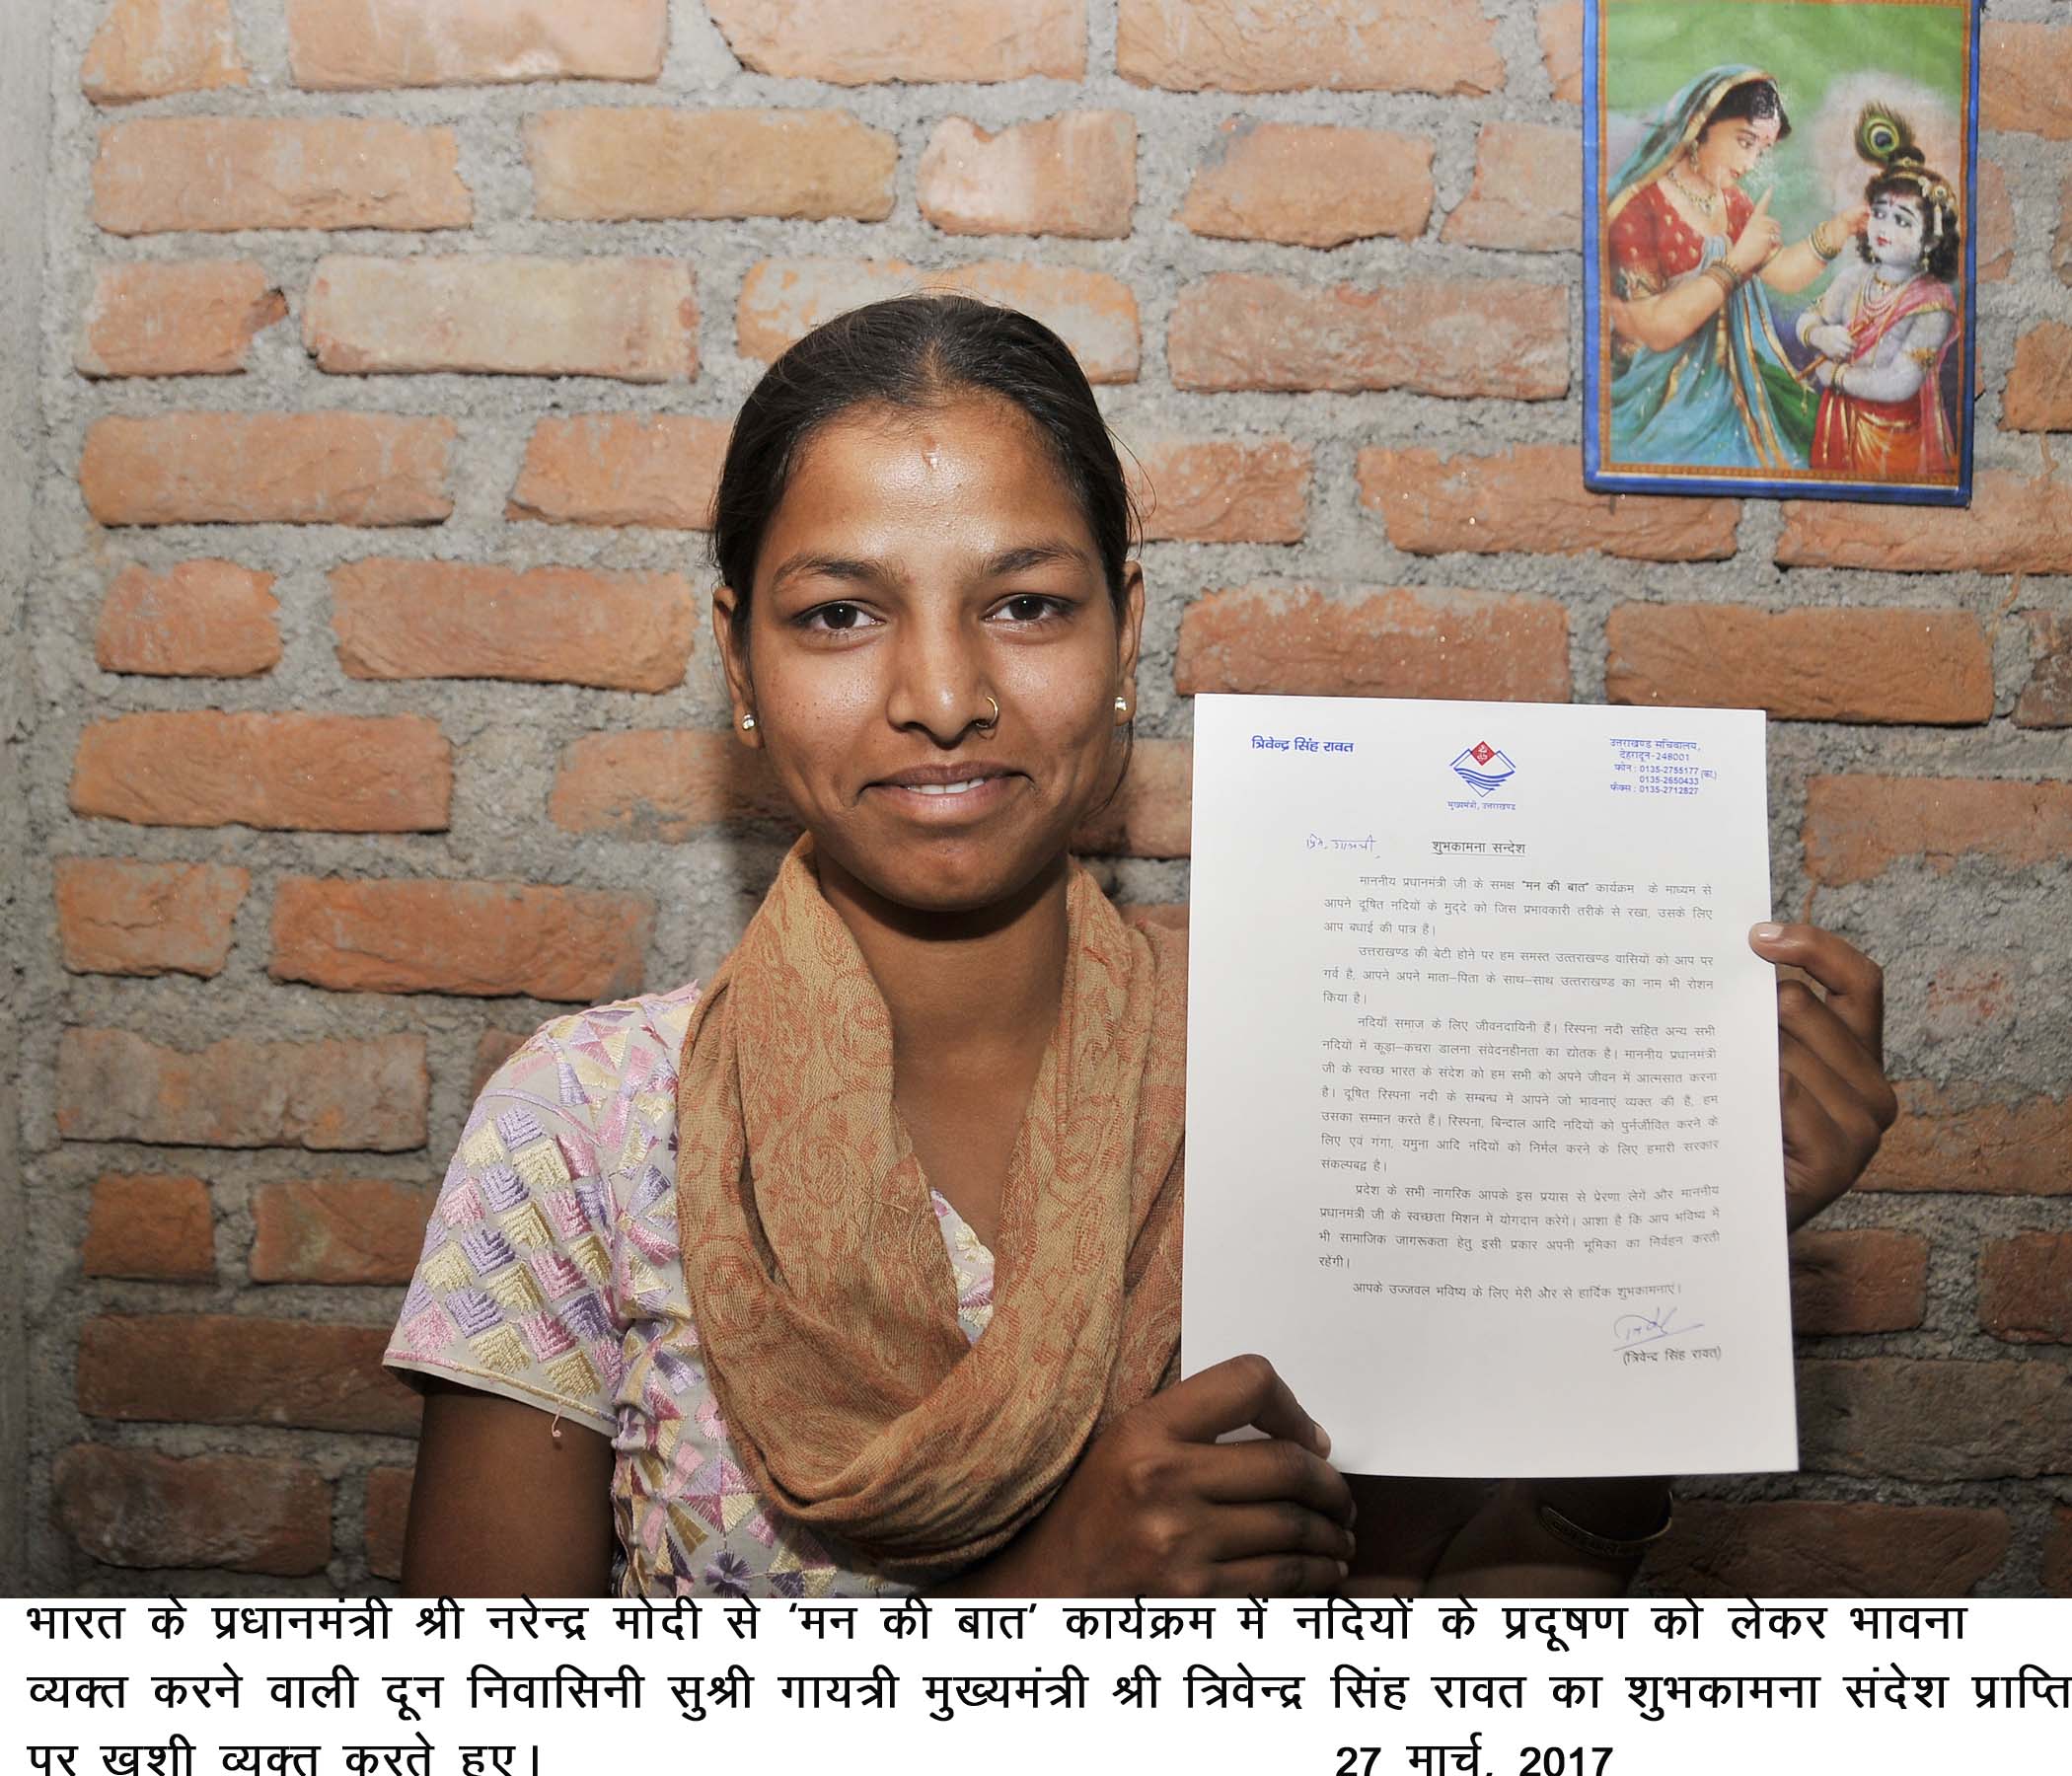 त्रिवेन्द्र सिंह रावत
मुख्यमंत्री, उत्तराखण्ड
उत्तराखण्ड सचिवालय,
देहरादून-248001
फोन : 0135-2755177 (का.)
0135-2650433
फैक्स : 0135-2712827
शुभकामना सन्देश
माननीय प्रधानमंत्री जी के समक्ष "मन की बात" कार्यक्रम के माध्यम से
आपने दूषित नदियों के मुद्दे को जिस प्रभावकारी तरीके से रखा, उसके लिए
आप बधाई की पात्र है।
उत्तराखण्ड की बेटी होने पर हम समस्त उत्तराखण्ड वासियों को आप पर
गर्व है, आपने अपने माता–पिता के साथ–साथ उत्तराखण्ड का नाम भी रोशन
किया है।
नदियाँ समाज के लिए जीवनदायिनी हैं। रिस्पना नदी सहित अन्य सभी
नदियों में कूड़ा–कचरा डालना संवेदनहीनता का द्योतक है। माननीय प्रधानमंत्री
जी के स्वच्छ भारत के संदेश को हम सभी को अपने जीवन में आत्मसात करना
है। दूषित रिस्पना नदी के सम्बन्ध में आपने जो भावनाएं व्यक्त की हैं, हम
उसका सम्मान करते हैं। रिस्पना, बिन्दाल आदि नदियों को पुर्नजीवित करने के
लिए एवं गंगा, यमुना आदि नदियों को निर्मल करने के लिए हमारी सरकार
संकल्पबद्व है।
प्रदेश के सभी नागरिक आपके इस प्रयास से प्रेरणा लेगें और माननीय
प्रधानमंत्री जी के स्वच्छता मिशन में योगदान करेगें। आशा है कि आप भविष्य में
भी सामाजिक जागरूकता हेतु इसी प्रकार अपनी भूमिका का निर्वहन करती
रहेंगी।
आपके उज्जवल भविष्य के लिए मेरी और से हार्दिक शुभकामनाएं।
(त्रिवेन्द्र सिंह रावत)
भारत के प्रधानमंत्री श्री नरेन्द्र मोदी से ‘मन की बात’ कार्यक्रम में नदियों के प्रदूषण को लेकर भावना
व्यक्त करने वाली दून निवासिनी सुश्री गायत्री मुख्यमंत्री श्री त्रिवेन्द्र सिंह रावत का शुभकामना संदेश प्राप्ति
पर खुशी व्यक्त करते हुए। 27 मार्च, 2017